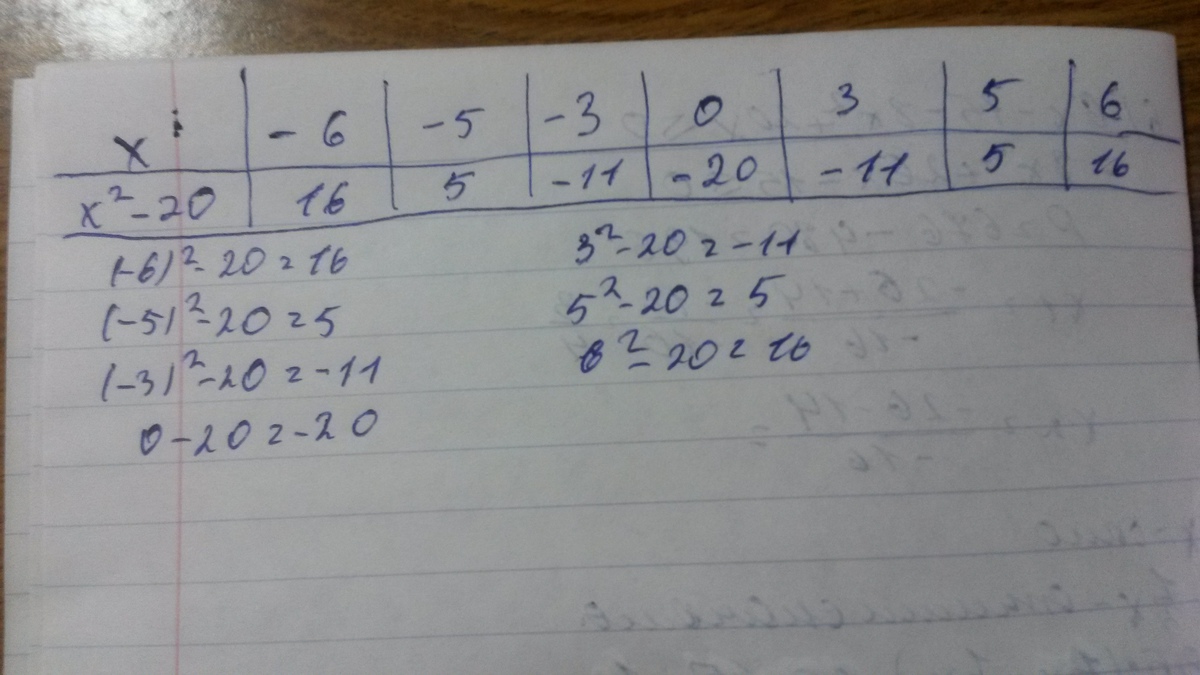 x -6 -5 -3 0 3 5 6
x²-20 16 5 -11 -20 -11 5 16
(-6)²-20=16 3²-20=-11
(-5)²-20=5 5²-20=5
(-3)²-20=-11 6²-20=16
0-20=-20